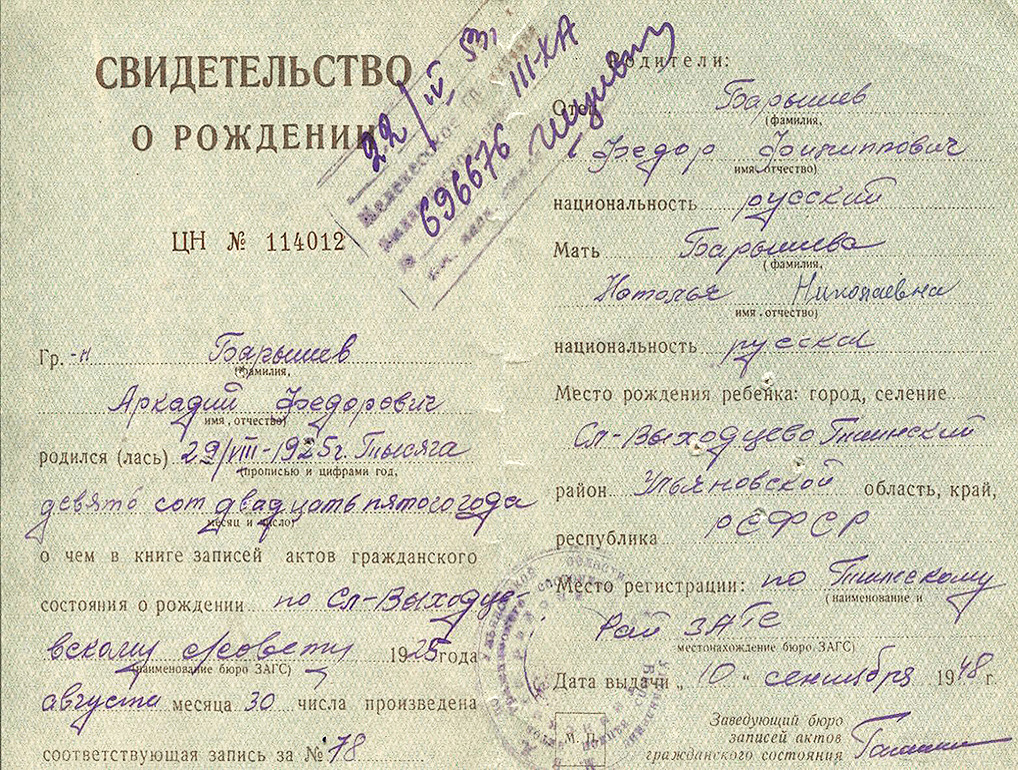 СВИДЕТЕЛЬСТВО
О РОЖДЕНИИ
22/IV 53г
III-ХА
696676
ЦН № 114012
Гр.-н Барышев
(фамилия,
Аркадий Федорович
имя, отчество)
родился (лась) 29/VIII-1925г. Тысяга
(прописью и цифрами год,
девято сот двадцать пятого года
месяц и число)
о чем в книге записей актов гражданского
состояния о рождении по Сл-Выходце-
вскому с/совету 1925 года
(наименование бюро ЗАГС)
августа месяца 30 числа произведена
соответствующая запись за № 78
Родители:
Отец Барышев
(фамилия,
Федор Филиппович
имя, отчество)
национальность русский
Мать Барышева
(фамилия,
Наталья Николаевна
имя, отчество)
национальность русская
Место рождения ребенка: город, селение
Сл-Выходцево Тиинский
район Ульяновской область, край,
республика РСФСР
Место регистрации: по Тиинскому
(наименование и
Рай ЗАГС
местонахождение бюро ЗАГС)
Дата выдачи „10“ сентября 1948 г.
М. П.
Заведующий бюро
записей актов
гражданского состояния